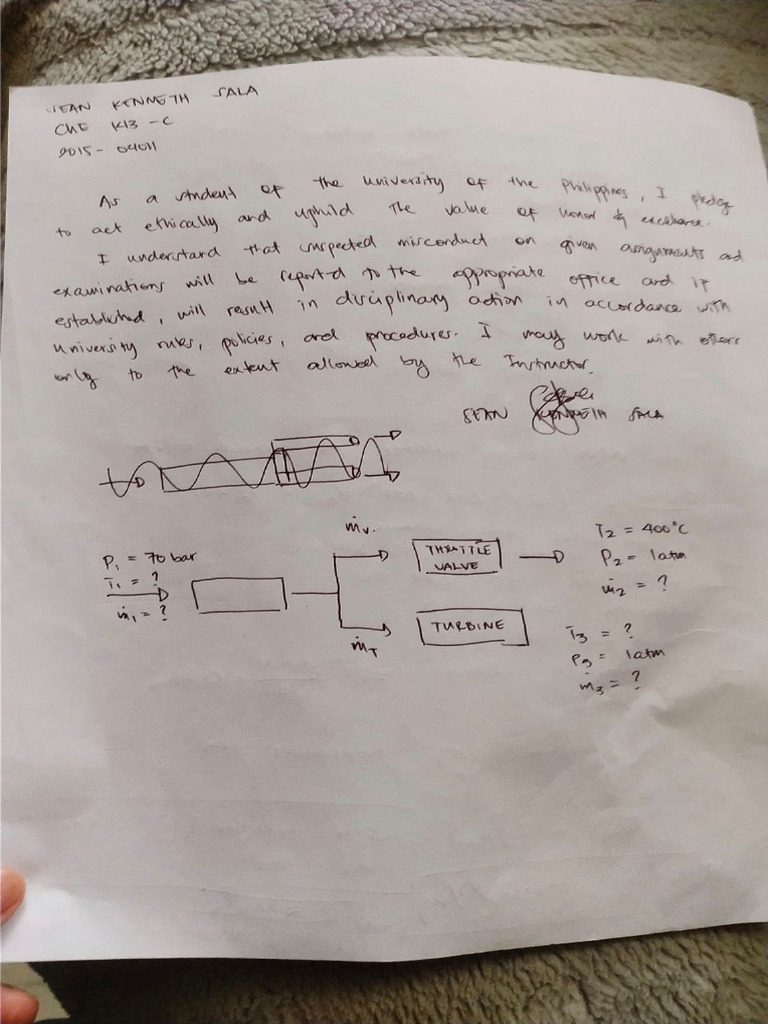 SEAN KENNETH SALA
ChE K13 - C
2015 - 04011
As a student of the university of the Philippines, I pledge
to act ethically and uphold the value of honor & excellence.
I understand that suspected misconduct on given assignments and
examinations will be reported to the appropriate office and if
established, will result in disciplinary action in accordance with
university rules, policies, and procedures. I may work with others
only to the extent allowed by the Instructor.
SEAN KENNETH SALA
ṁv.
P1 = 70 bar
T1 = ?
ṁ1 = ?
THROTTLE
VALVE
T2 = 400°C
P2 = 1atm
ṁ2 = ?
TURBINE
ṁT
T3 = ?
P3 = 1atm
ṁ3 = ?